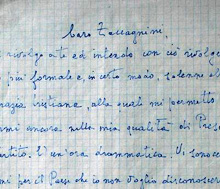 Caro Zaccagnini,
rivolgo a te ed intendo con ciò rivolge
più formale e, in certo modo, solenne
razia cristiana, alla quale mi permetto
rmi ancora nella mia qualità di Pres
artito. È un'ora drammatica. Vi sono
mi per il Paese che io non voglio disconosce